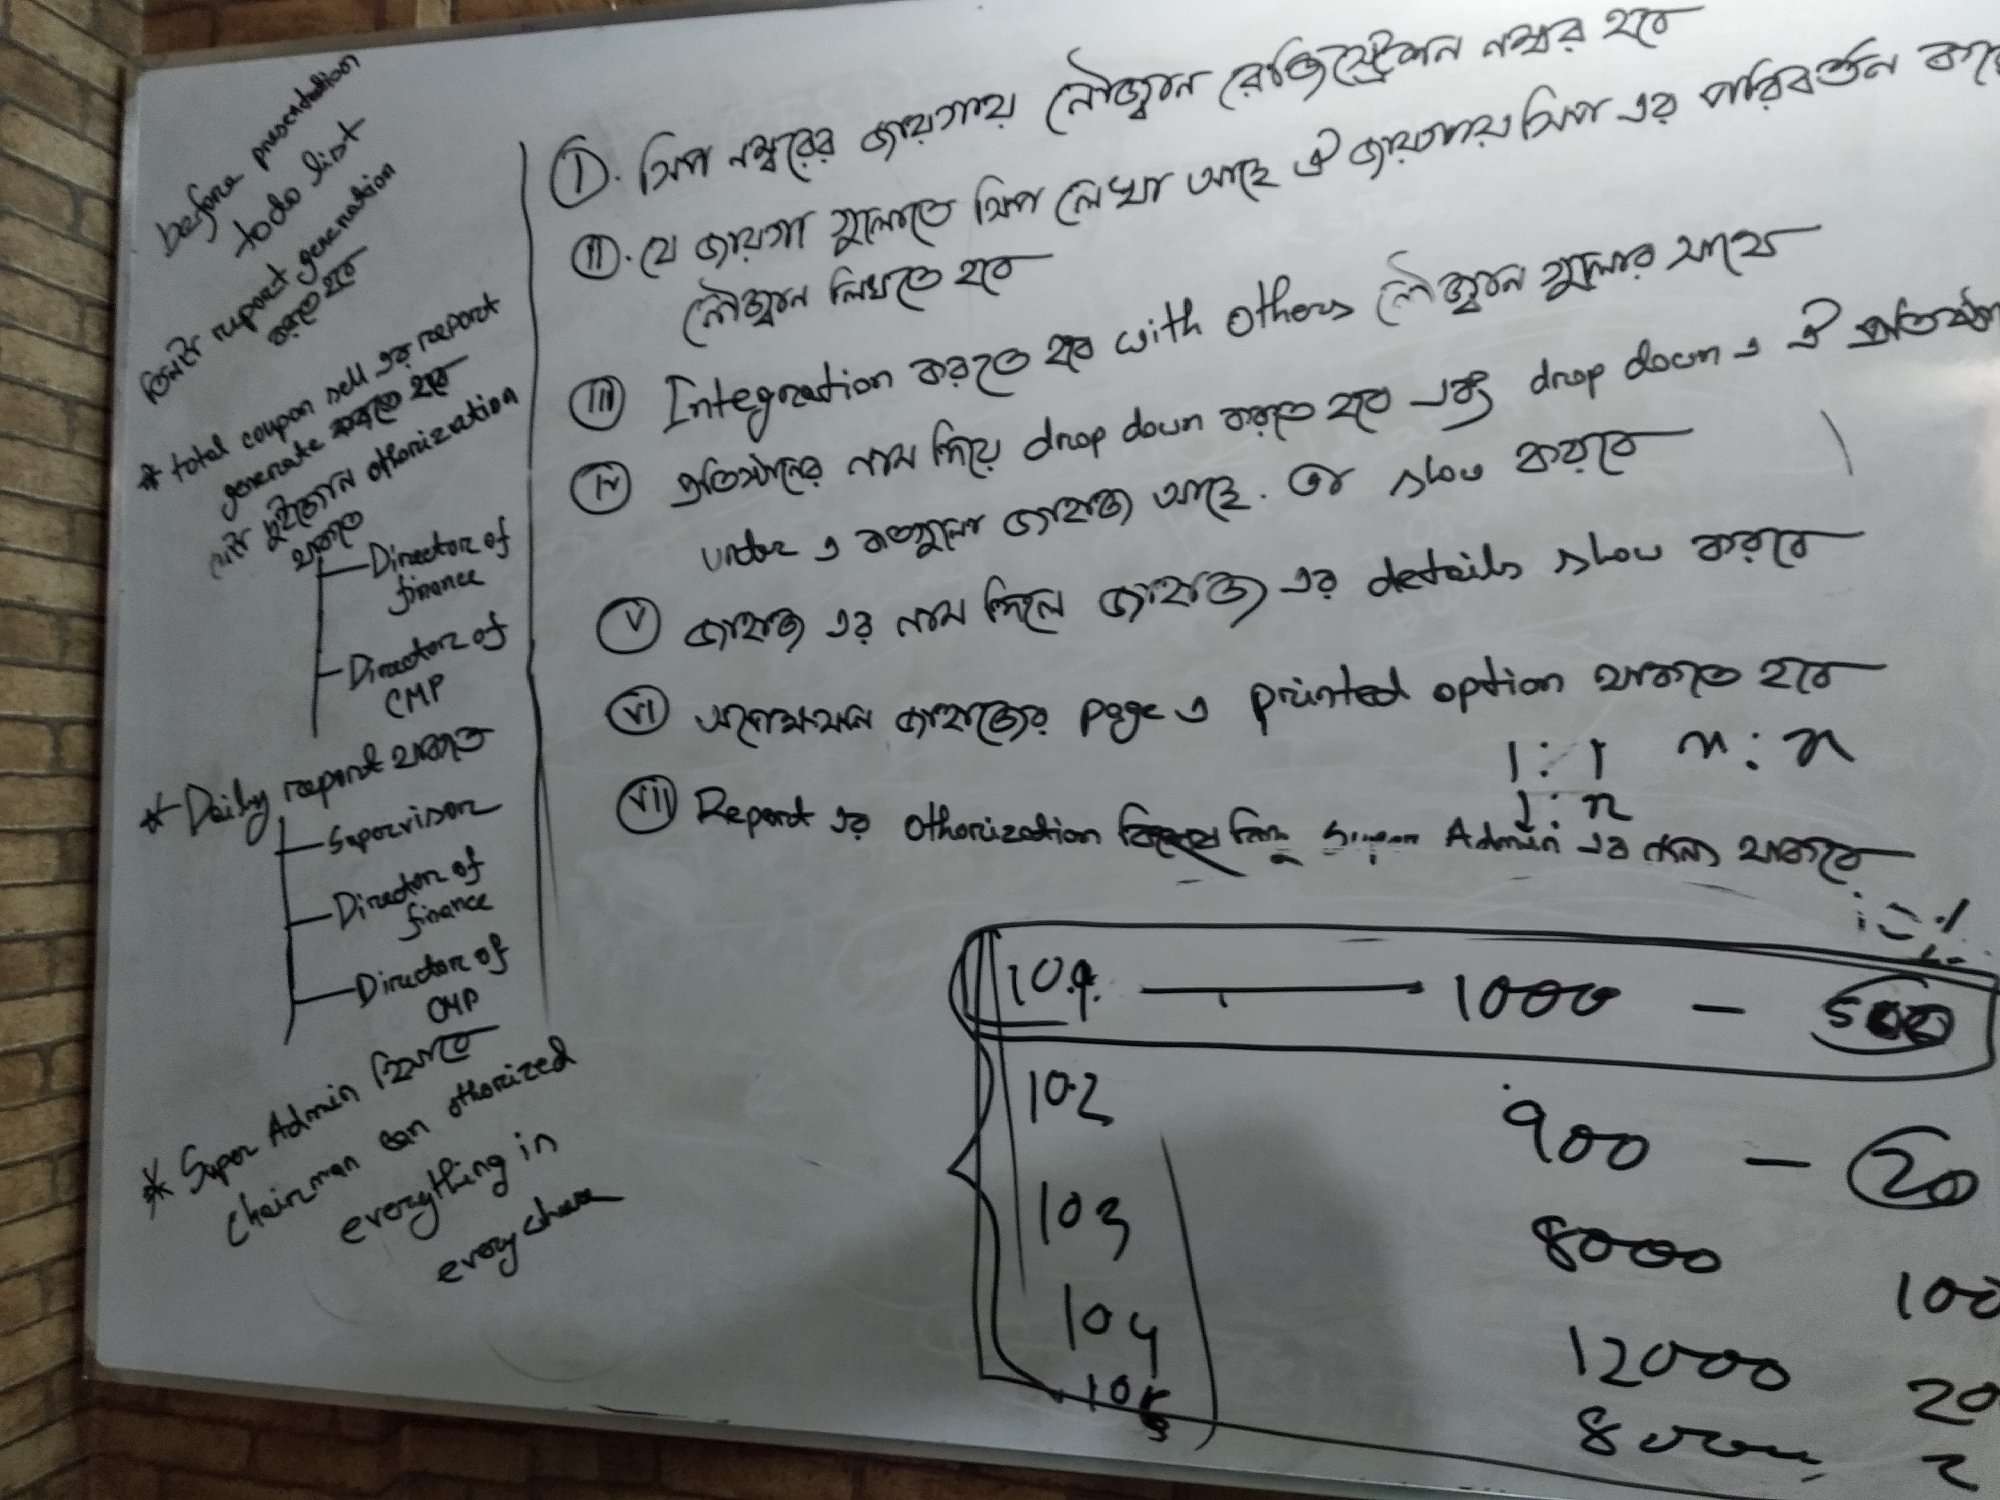 before presentation
todo list
তিনটা report generation
করতে হবে
* total coupon sell এর report
generate করতে হবে
দুইজোন othorization
থাকতে
Director of
finance
Director of
CMP
* Daily report থাকতে
Suporvisor
Director of
finance
Director of
CMP
* Super Admin হিসাবে
Chairman can othorized
everything in
every where
I. সিপ নম্বরের জায়গায় নৌজান রেজিস্ট্রেশন নম্বর হবে
II. যে জায়গা গুলোতে সিপ লেখা আছে ঐ জায়গায় সিপ এর পরিবর্তন করে
নৌজান লিখতে হবে
III Integration করতে হবে with others নৌজান গুলোর সাথে
IV প্রতিষ্ঠানের নাম দিয়ে drop down করতে হবে এবং drop down এ ঐ
under এ কতগুলো জাহাজ আছে. তা show করবে
V জাহাজ এর নাম দিলে জাহাজ এর details show করবে
VI অপেক্ষমান জাহাজের page এ printed option থাকতে হবে
1 : 1 n : n
1 : n
VII Report এর othorization Admin এর জন্য থাকবে
101 1000 - 500
102 900 - 20
103 8000 100
104 12000 20
105